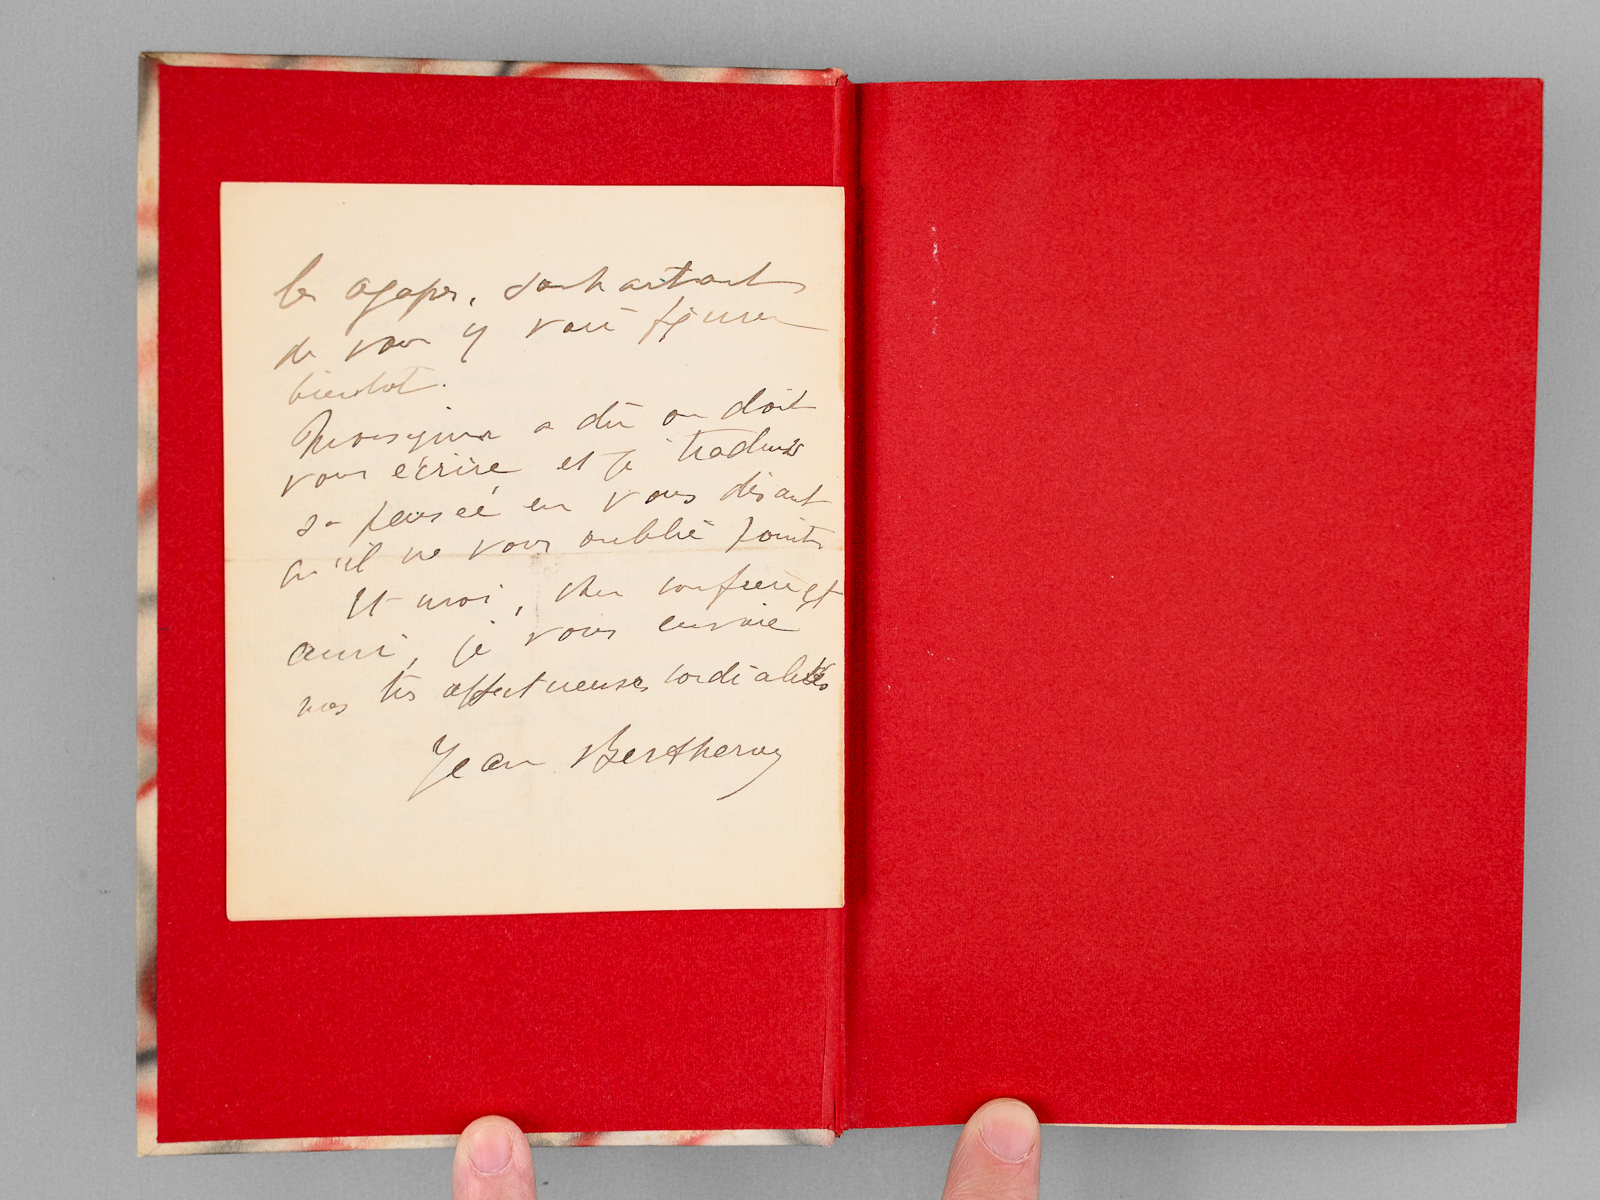 les agapes, souhaitant
de vous y voir figurer
bientôt.
Monseigneur a dû ou doit
vous écrire et je traduis
sa pensée en vous disant
qu'il ne vous oublie point.
Et moi, cher confrère et
ami, je vous envoie
mes très affectueuses cordialités
Jean Bertheroy